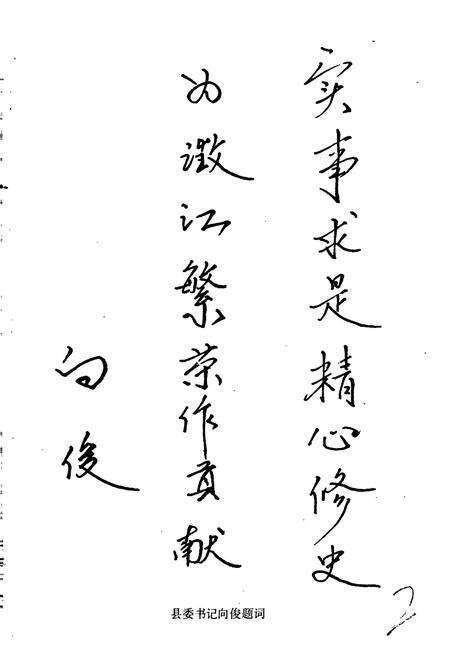 实事求是精心修史
为澂江繁荣作贡献
向俊
县委书记向俊题词
2